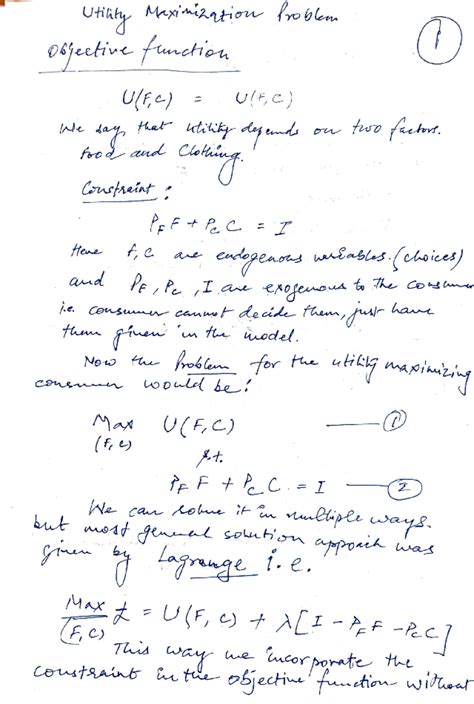 Utility Maximization Problem
1
Objective function
U(F,C) = U(F,C)
We say that utility depends on two factors.
Food and Clothing.
Constraint :
P_F F + P_C C = I
Here F, C are endogenous variables. (choices)
and P_F, P_C, I are exogenous to the consumer
i.e. consumer cannot decide them, just have
them given in the model.
Now the Problem for the utility maximizing
consumer would be:
Max U(F,C) —— 1
(F,C)
s.t.
P_F F + P_C C = I —— 2
We can solve it in multiple ways.
but most general solution approach was
given by Lagrange i.e.
Max ℒ = U(F,C) + λ[I - P_F F - P_C C]
(F,C)
This way we incorporate the
constraint in the objective function without